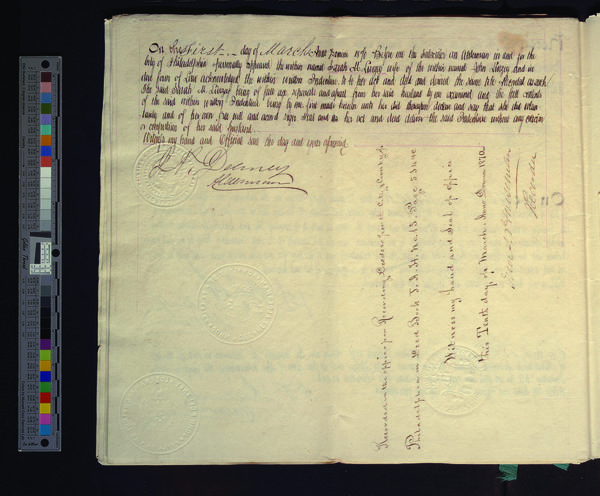 On this First day of March Anno Domini 1870 Before me the Subscriber an Alderman in and for the
City of Philadelphia Personally appeared the within named Sarah M. wife of the within named and in
due form of Law acknowledged the within written Indenture to be her act and deed and desired the same to be Recorded as such
the said Sarah M. being of full age separate and apart from her said husband by me examined and the full contents
of the said within written Indenture being by me first made known unto her did thereupon declare and say that she did volun
tarily and of her own free will and accord sign seal and as her act and deed deliver the said Indenture without any coercion
or compulsion of her said husband
Witness my hand and Official seal the day and year aforesaid
Alderman
Recorded in the office for Recording Deeds for the City & County of
Philadelphia in Deed Book No. 13 Page 534 &c
Witness my hand and Seal of Office
this Tenth day of March Anno Domini 1870
Recorder